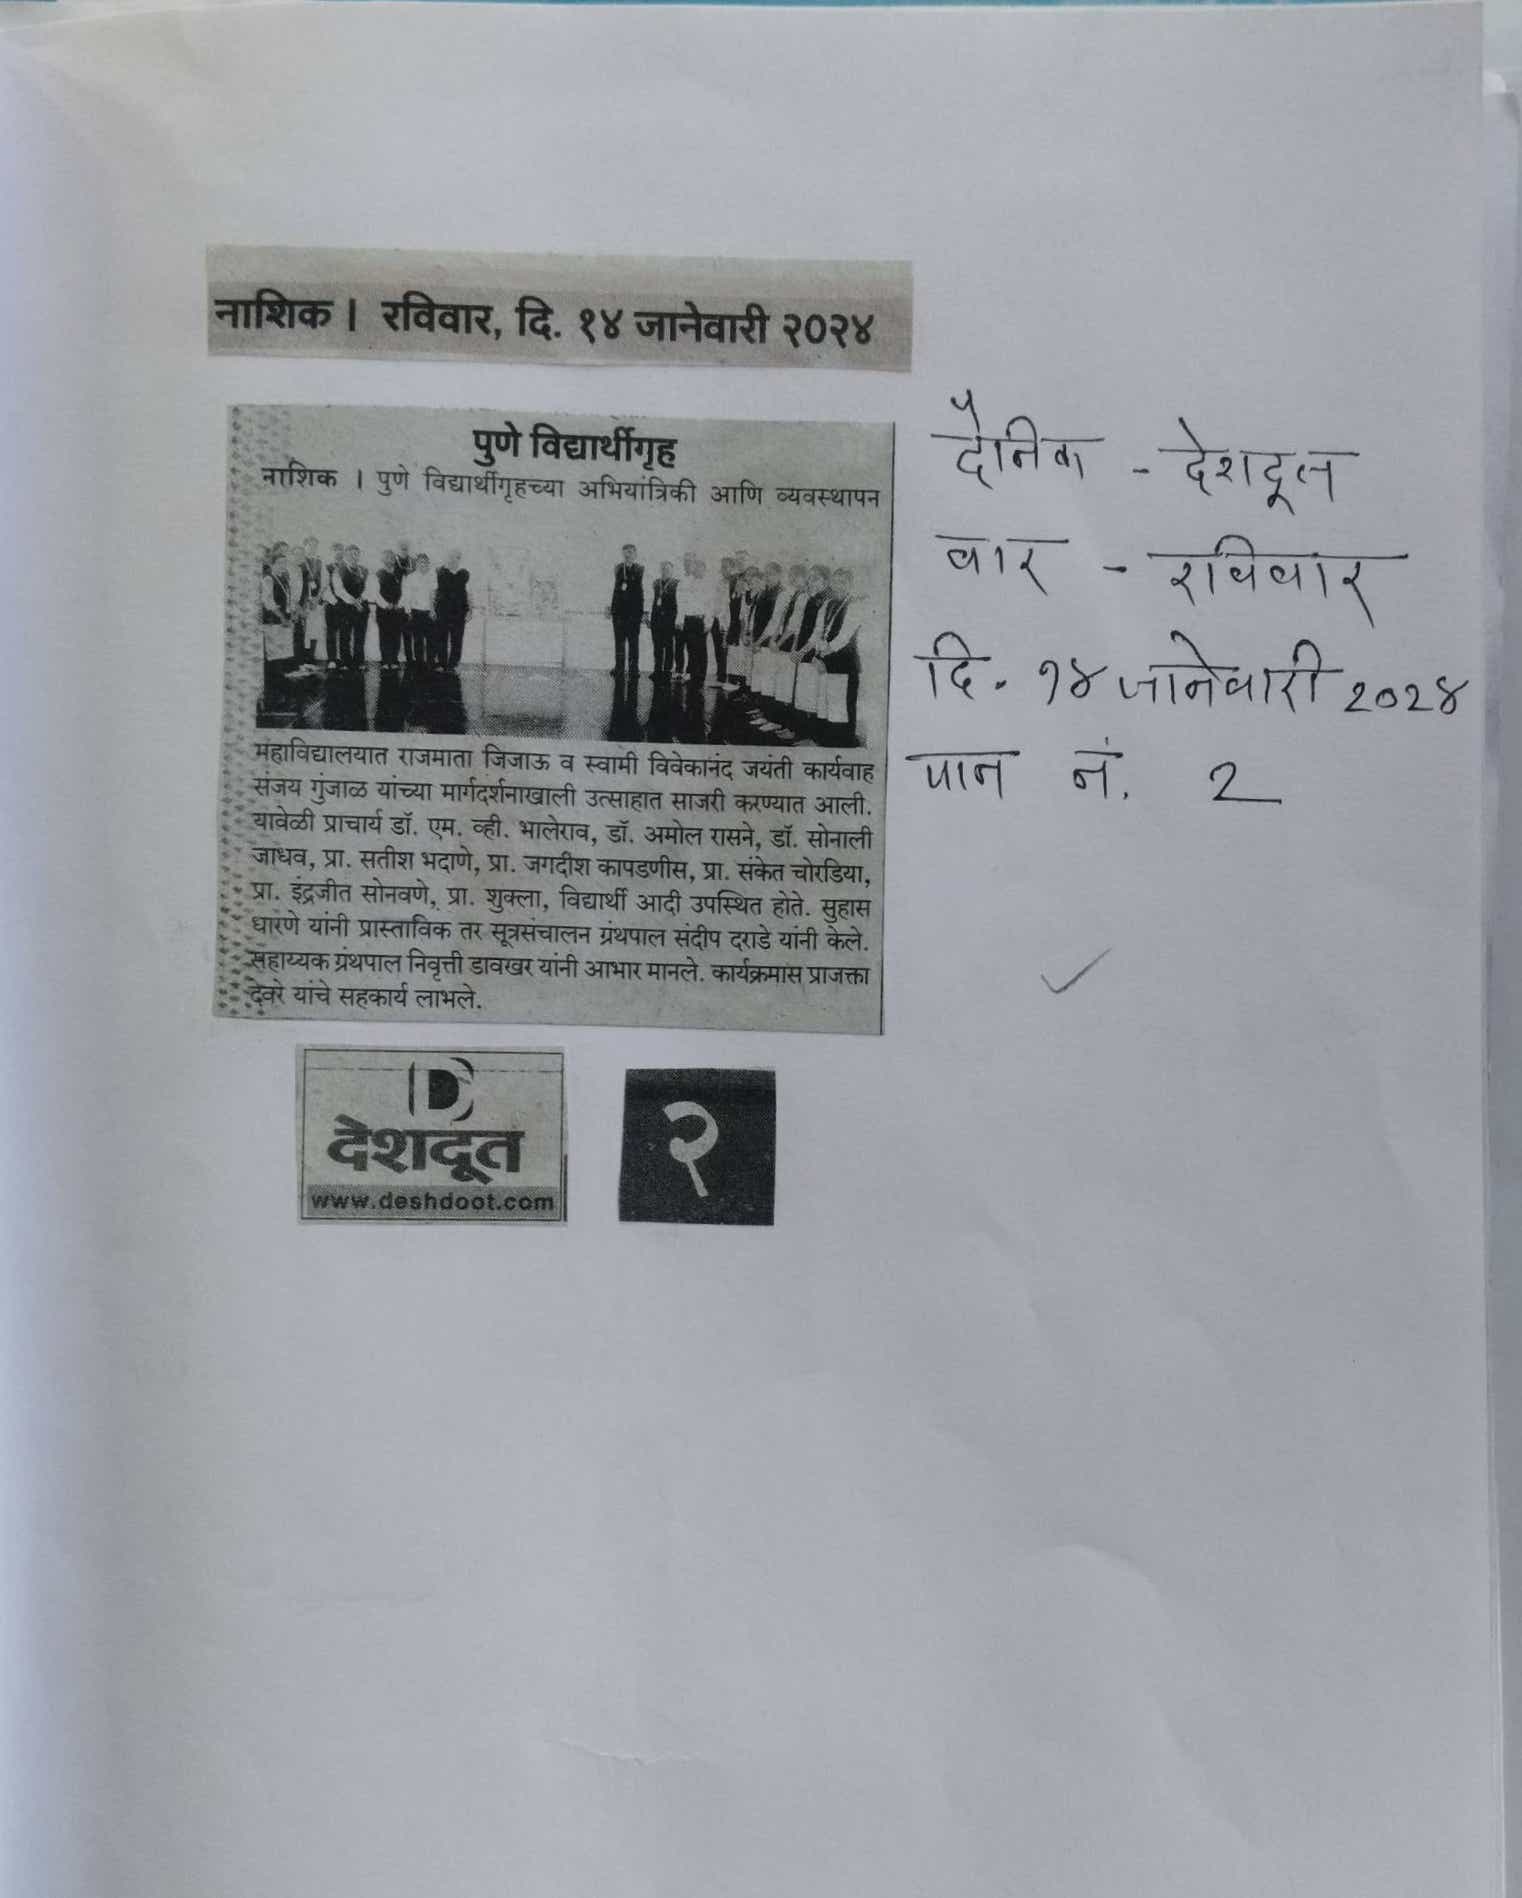 नाशिक । रविवार, दि. १४ जानेवारी २०२४
पुणे विद्यार्थीगृह
नाशिक । पुणे विद्यार्थीगृहच्या अभियांत्रिकी आणि व्यवस्थापन
महाविद्यालयात राजमाता जिजाऊ व स्वामी विवेकानंद जयंती कार्यवाह
संजय गुंजाळ यांच्या मार्गदर्शनाखाली उत्साहात साजरी करण्यात आली.
यावेळी प्राचार्य डॉ. एम. व्ही. भालेराव, डॉ. अमोल रासने, डॉ. सोनाली
जाधव, प्रा. सतीश भदाणे, प्रा. जगदीश कापडणीस, प्रा. संकेत चोरडिया,
प्रा. इंद्रजीत सोनवणे, प्रा. शुक्ला, विद्यार्थी आदी उपस्थित होते. सुहास
धारणे यांनी प्रास्ताविक तर सूत्रसंचालन ग्रंथपाल संदीप दराडे यांनी केले.
सहाय्यक ग्रंथपाल निवृत्ती डावखर यांनी आभार मानले. कार्यक्रमास प्राजक्ता
देवरे यांचे सहकार्य लाभले.
D
देशदूत
www.deshdoot.com
२
दैनिक - देशदूत
वार - रविवार
दि. १४ जानेवारी २०२४
पान नं. 2